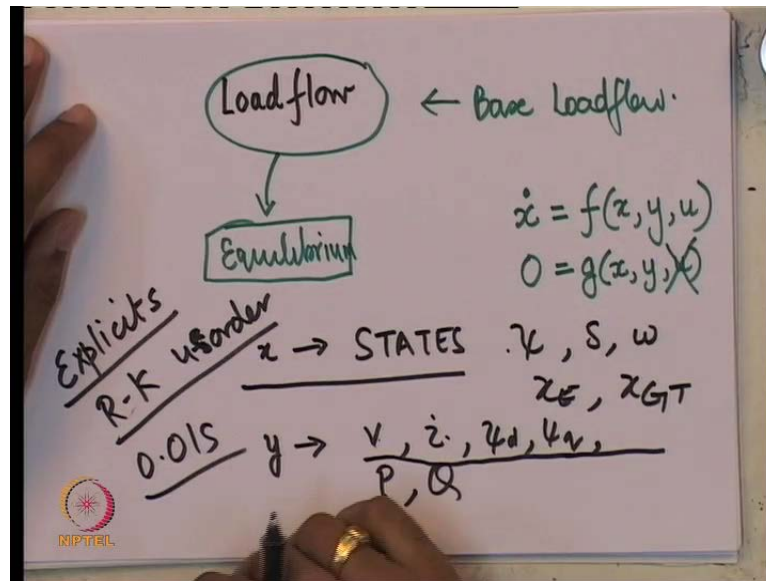 Loadflow ← Base Loadflow.
Equilibrium
ẋ = f(x, y, u)
0 = g(x, y, u)
Explicits
R-K order
0.01S
x → STATES ψ, δ, ω
x_E, x_GT
y → v, i, ψd, ψq,
P, Q
NPTEL